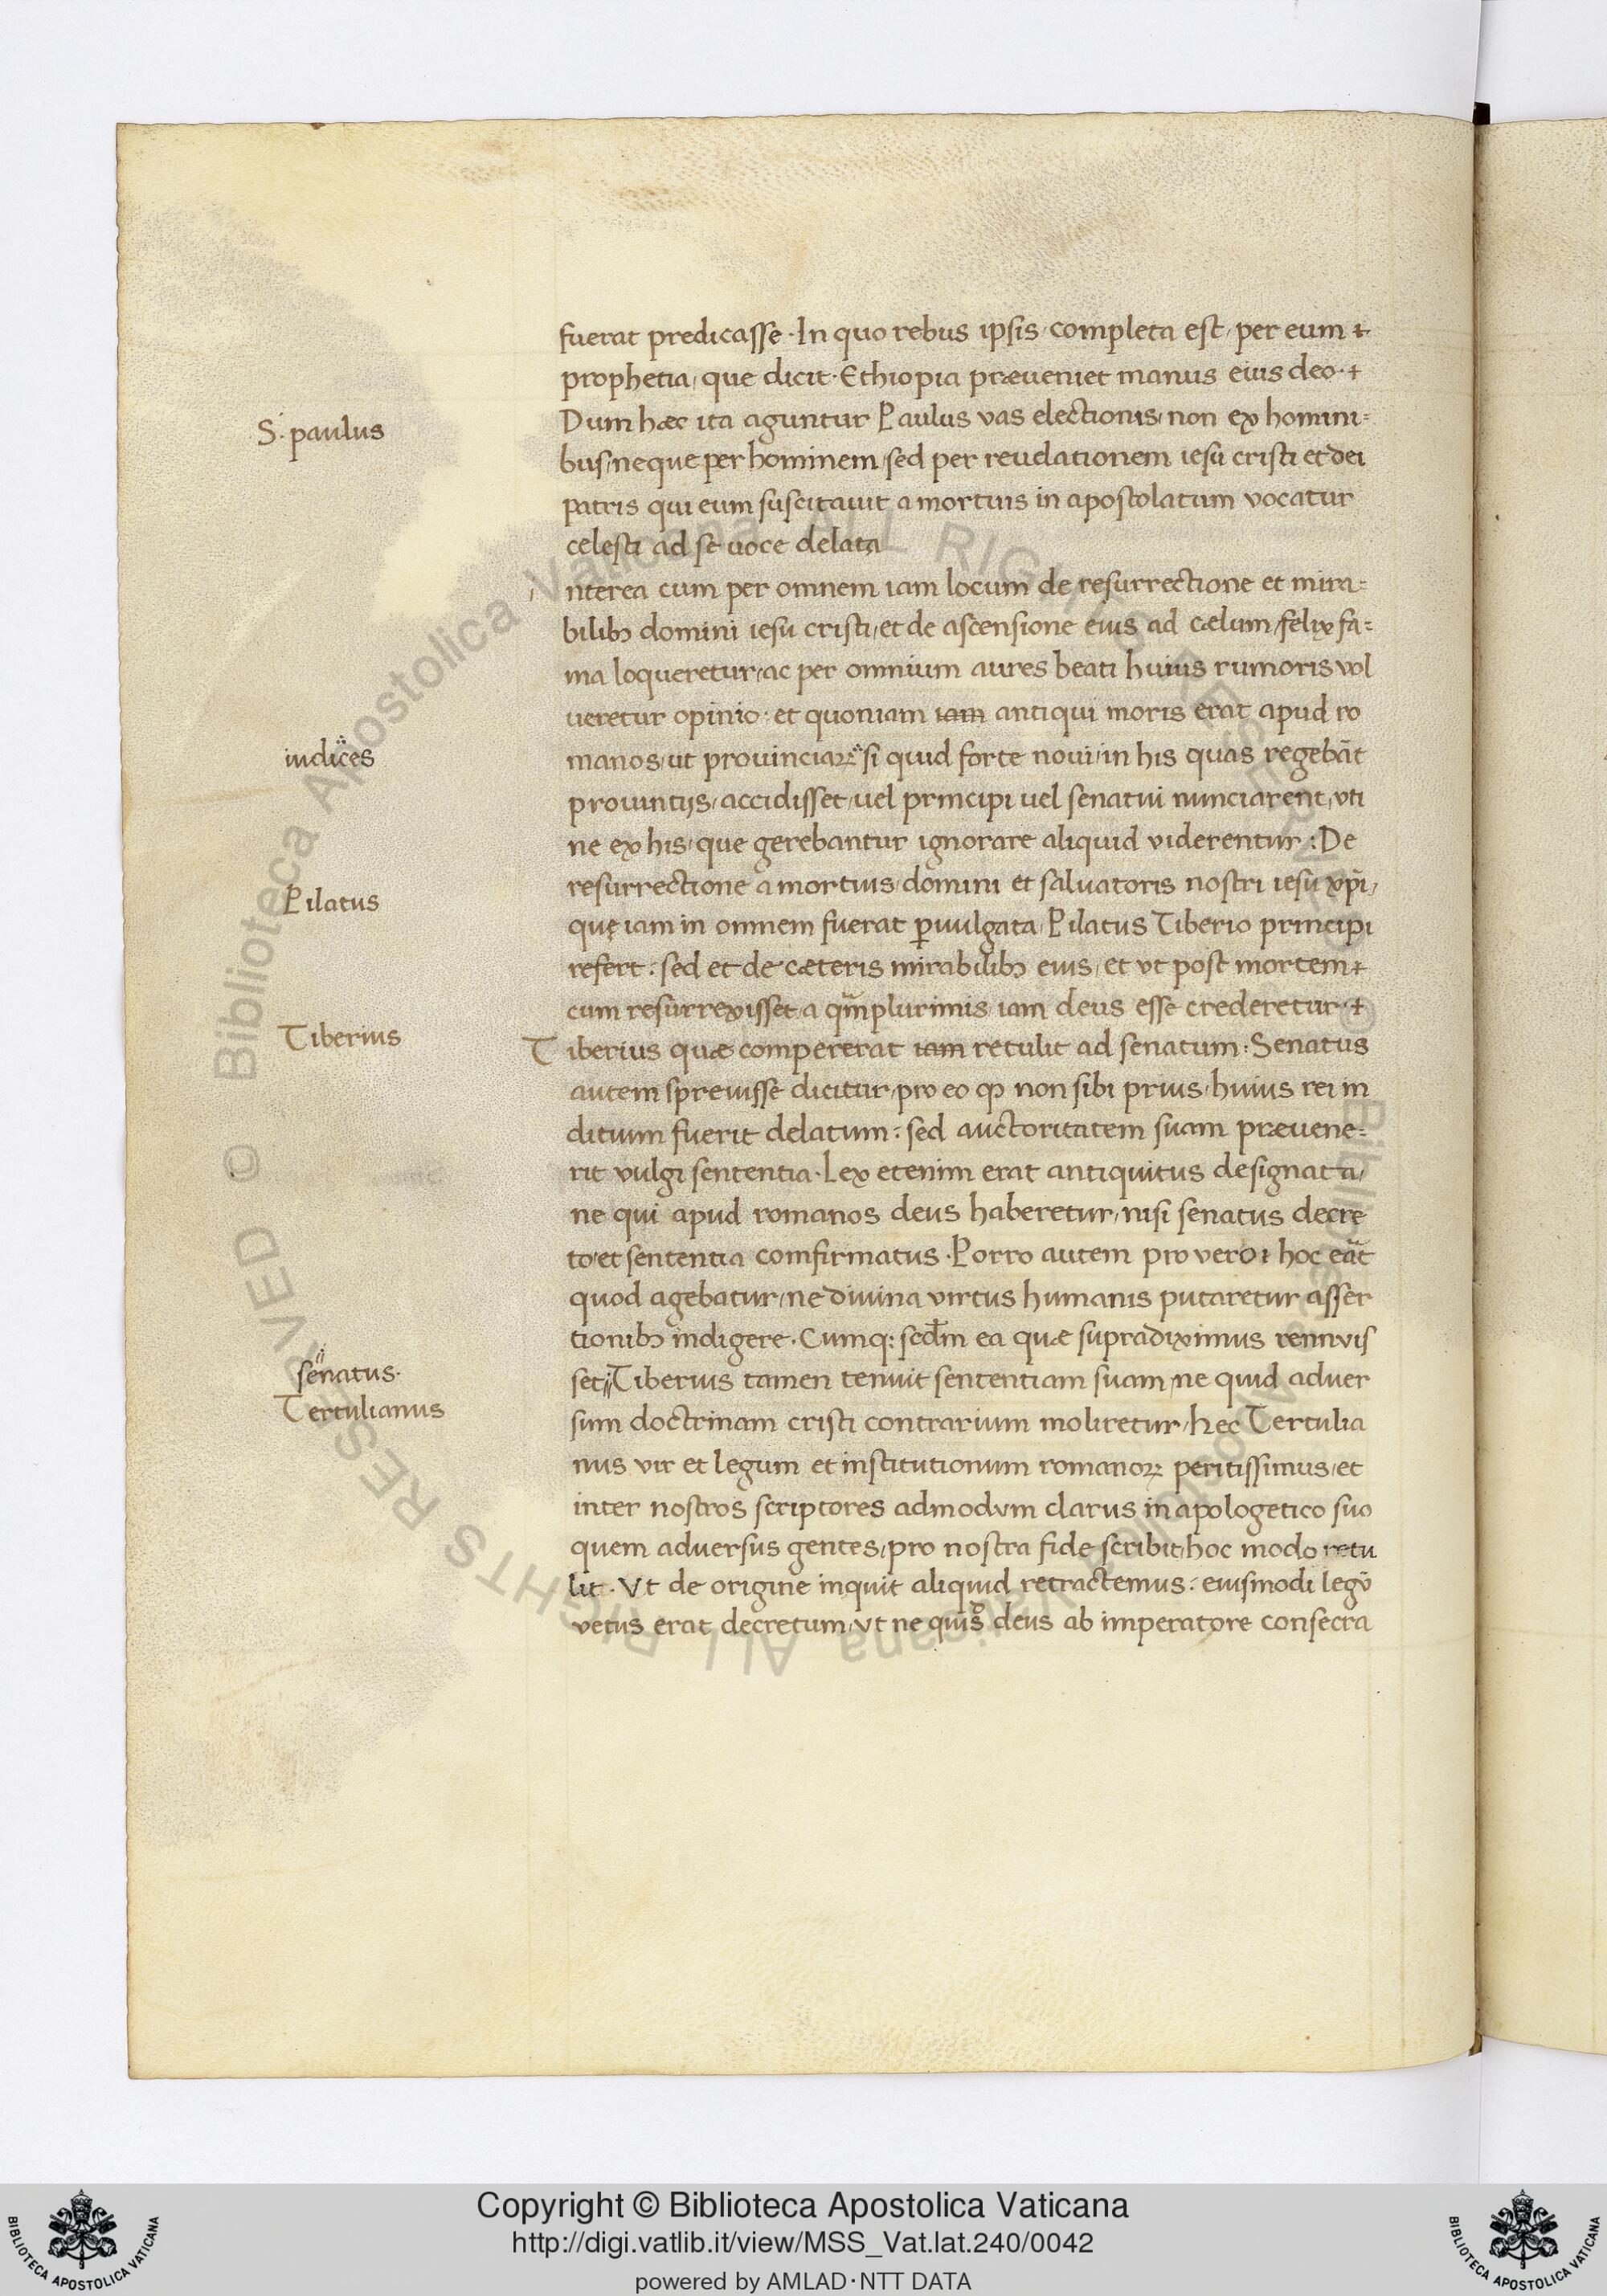 fuerat predicasse · In quo rebus ipsis, completa est, per eum +
prophetia, que dicit · Ethiopia præueniet manus eius deo · +
S. paulus
Dum hæc ita aguntur Paulus vas electionis, non ex homini=
bus, neque per hominem, sed per reuelationem iesu cristi et dei
patris qui eum suscitauit a mortuis in apostolatum vocatur
celesti ad se uoce delata
i nterea cum per omnem iam locum de resurrectione et mira=
bilibꝫ domini iesu cristi, et de ascensione eius ad cælum, felix fa=
ma loqueretur, ac per omnium aures beati huius rumoris vol
ueretur opinio : et quoniam iam antiqui moris erat apud ro
iudices
manos, ut prouinciaꝝ si quid forte noui, in his quas regebāt
prouintijs, accidisset, uel principi uel senatui nunciarent, vti
ne ex his, que gerebantur ignorare aliquid viderentur : De
Pilatus
resurrectione a mortuis, domini et saluatoris nostri iesu xp̄i,
quę iam in omnem fuerat ꝑuulgata, Pilatus Tiberio principi
refert : sed et de cæteris mirabilibꝫ eius, et vt post mortem +
cum resurrexisset, a qm̄plurimis, iam deus esse crederetur · +
Tiberius
T iberius quæ compererat iam retulit ad senatum : Senatus
autem spreuisse dicitur, pro eo ꝙ non sibi prius, huius rei in
ditium fuerit delatum : sed auctoritatem suam præuene=
rit vulgi sententia · Lex etenim erat antiquitus designata,
ne qui apud romanos deus haberetur, nisi senatus decre
to, et sententia comfirmatus · Porro autem pro vero i hoc eāt
quod agebatur, ne diuina virtus humanis putaretur asser
tionibꝫ indigere · Cumq: scd̄m ea quæ supradiximus rennvis
senatus ·
set Tiberius tamen tenuit sententiam suam, ne quid aduer
Tertulianus
sum doctrinam cristi contrarium moliretur, hec Tertulia
nus vir et legum et institutionum romanoꝝ peritissimus, et
inter nostros scriptores admodvm clarus in apologetico suo
quem aduersus gentes, pro nostra fide scribit, hoc modo retu
lit · Vt de origine inquit aliquid retractemus : eiusmodi legū
vetus erat decretum, vt ne quis deus ab imperatore consecra
Copyright © Biblioteca Apostolica Vaticana
http://digi.vatlib.it/view/MSS_Vat.lat.240/0042
powered by AMLAD · NTT DATA
BIBLIOTECA APOSTOLICA VATICANA
BIBLIOTECA APOSTOLICA VATICANA
© Biblioteca Apostolica Vaticana ALL RIGHTS RESERVED
© Biblioteca Apostolica Vaticana ALL RIGHTS RESERVED